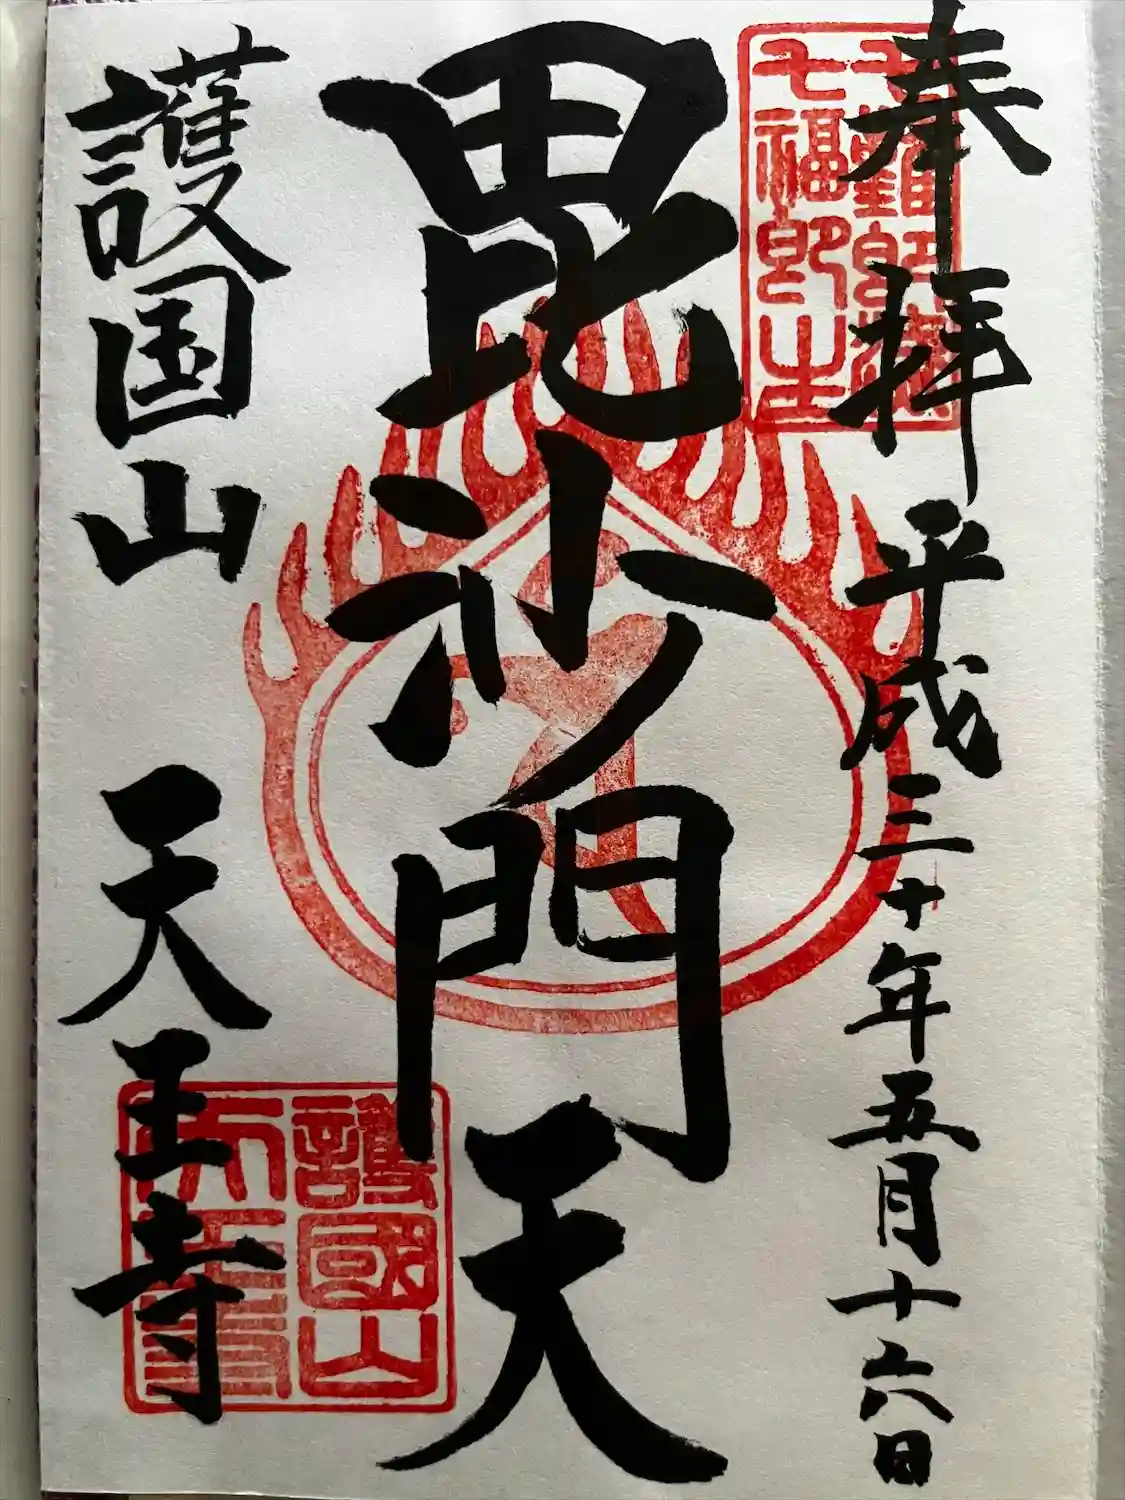 奉拝 平成三十年五月十六日
七福即生
毘沙門天
護国山 天王寺
護國山
天王寺